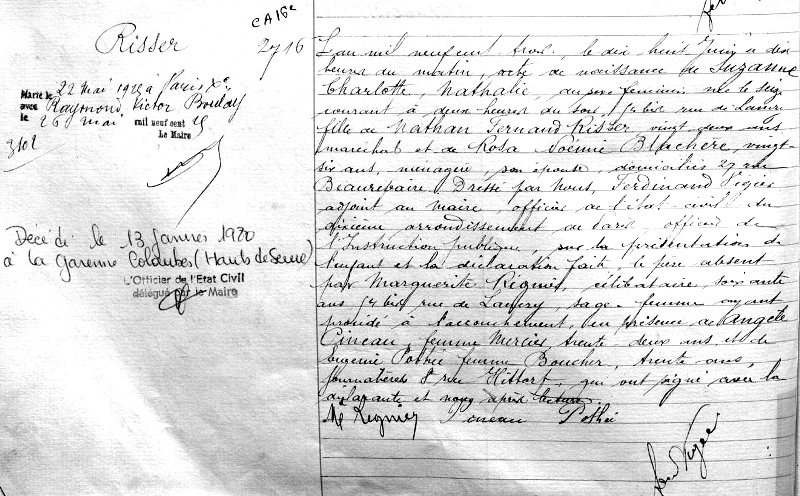 CA16e
Risser 2716
Marié le 22 Mai 1926 à Paris Xe
avec Raymond Victor
le 26 mai mil neuf cent
Le Maire
3102
Décédée le 13 Janvier 1920
à la Garenne Colombes (Hauts de Seine)
L'Officier de l'Etat Civil
délégué par le Maire
L'an mil neuf cent trois, le dix huit Juin à dix
heures du matin, acte de naissance de Suzanne
Charlotte, Nathalie du sexe féminin née le seize
courant à deux heures du soir, bis rue de Lancry
fille de Nathan Fernand Risser vingt deux ans
maréchal et de Rosa Noémie Blachère, vingt-
six ans, ménagère, son épouse, domiciliés 29 rue
Beaurepaire. Dressé par Nous, Ferdinand Vigier
adjoint au maire, officier de l'état civil du
dixième arrondissement de Paris officier de
l'Instruction publique, sur la présentation de
l'enfant et la déclaration faite le père absent
par Marguerite Régnier, célibataire, soixante
ans bis rue de Lancry, sage-femme ayant
procédé à l'accouchement, en présence de Angèle
Cineau, femme Mercier, trente deux ans et de
Eugénie Pothée femme Boucher, trente ans,
journalières rue Hittorf, qui ont signé avec la
déclarante et nous après lecture.
Me Régnier Cineau Pothée